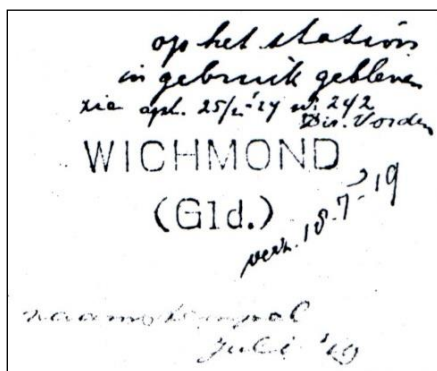 op het station
in gebruik gebleven
zie opk. 25/2-'24 N. 242
Dir. Vorden
WICHMOND
(Gld.)
verz. 18-7-'19
naamstempel
juli '19